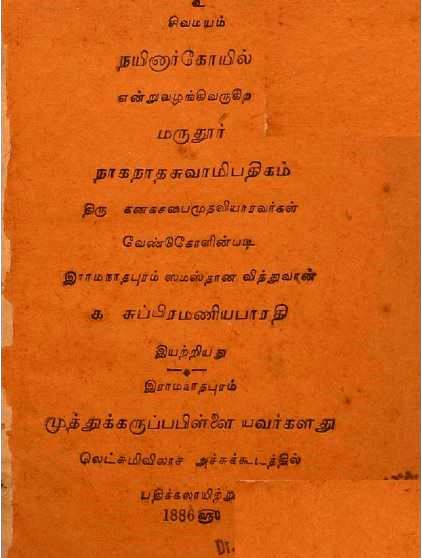 உ
சிவமயம்
நயினார்கோயில்
என்றுவழங்கிவருகிற
மருதூர்
நாகநாதசுவாமிபதிகம்
திரு கனகசபைமுதலியாரவர்கள்
வேண்டுகோளின்படி
இராமநாதபுரம் ஸமஸ்தான வித்துவான்
க சுப்பிரமணியபாரதி
இயற்றியது
இராமநாதபுரம்
முத்துக்கருப்பபிள்ளை யவர்களது
லெட்சுமிவிலாச அச்சுக்கூடத்தில்
பதிக்கலாயிற்று
1886௵
Dr.